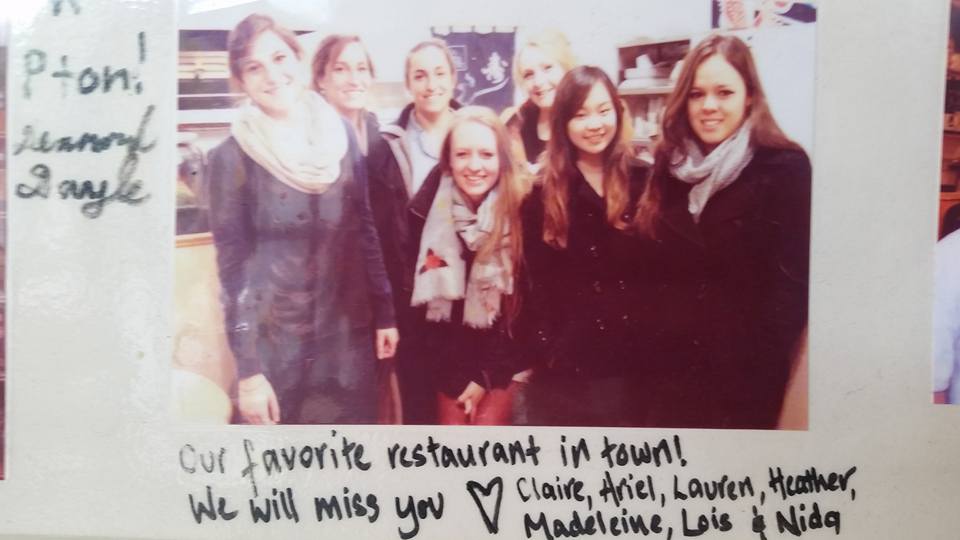 Pton!
Our favorite restaurant in town!
We will miss you ♡ Claire, Ariel, Lauren, Heather,
Madeleine, Lois & Nida